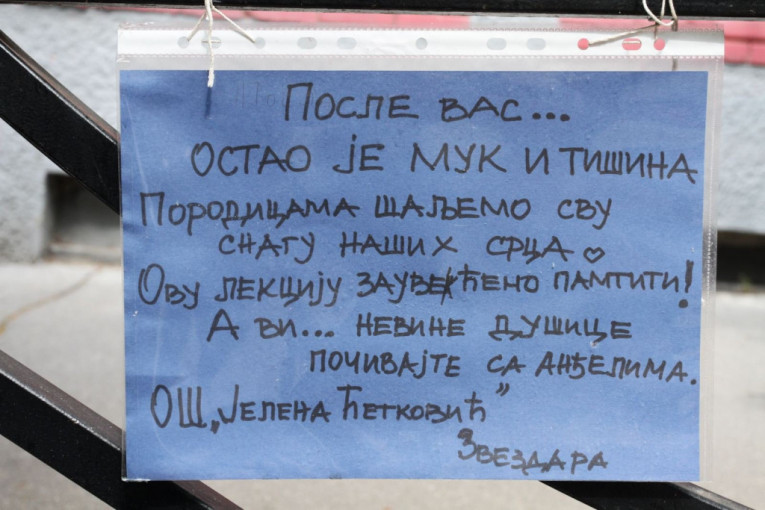 После вас...
остао је мук и тишина
Породицама шаљемо сву
снагу наших срца ♡
Ову лекцију заувек ћено памтити!
А ви... невине душице
почивајте са анђелима.
ОШ „Јелена Ћетковић”
Звездара